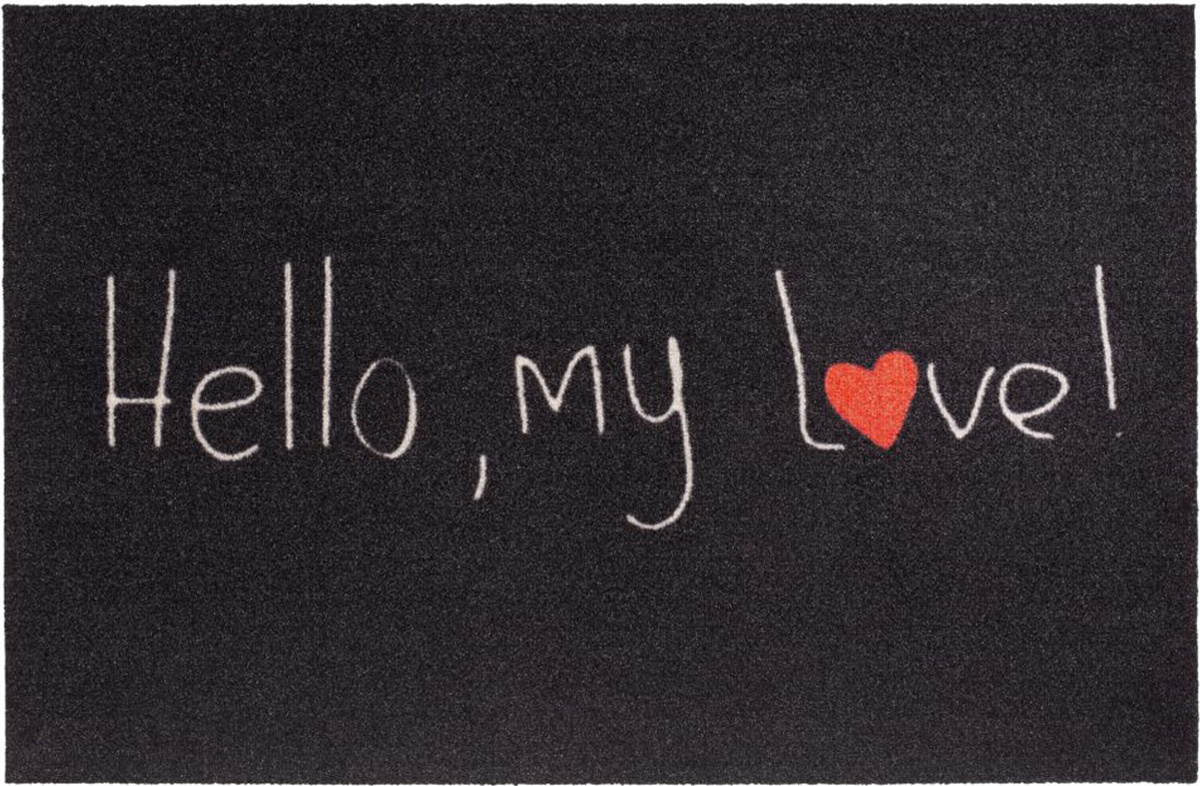 Hello, my L❤ve!